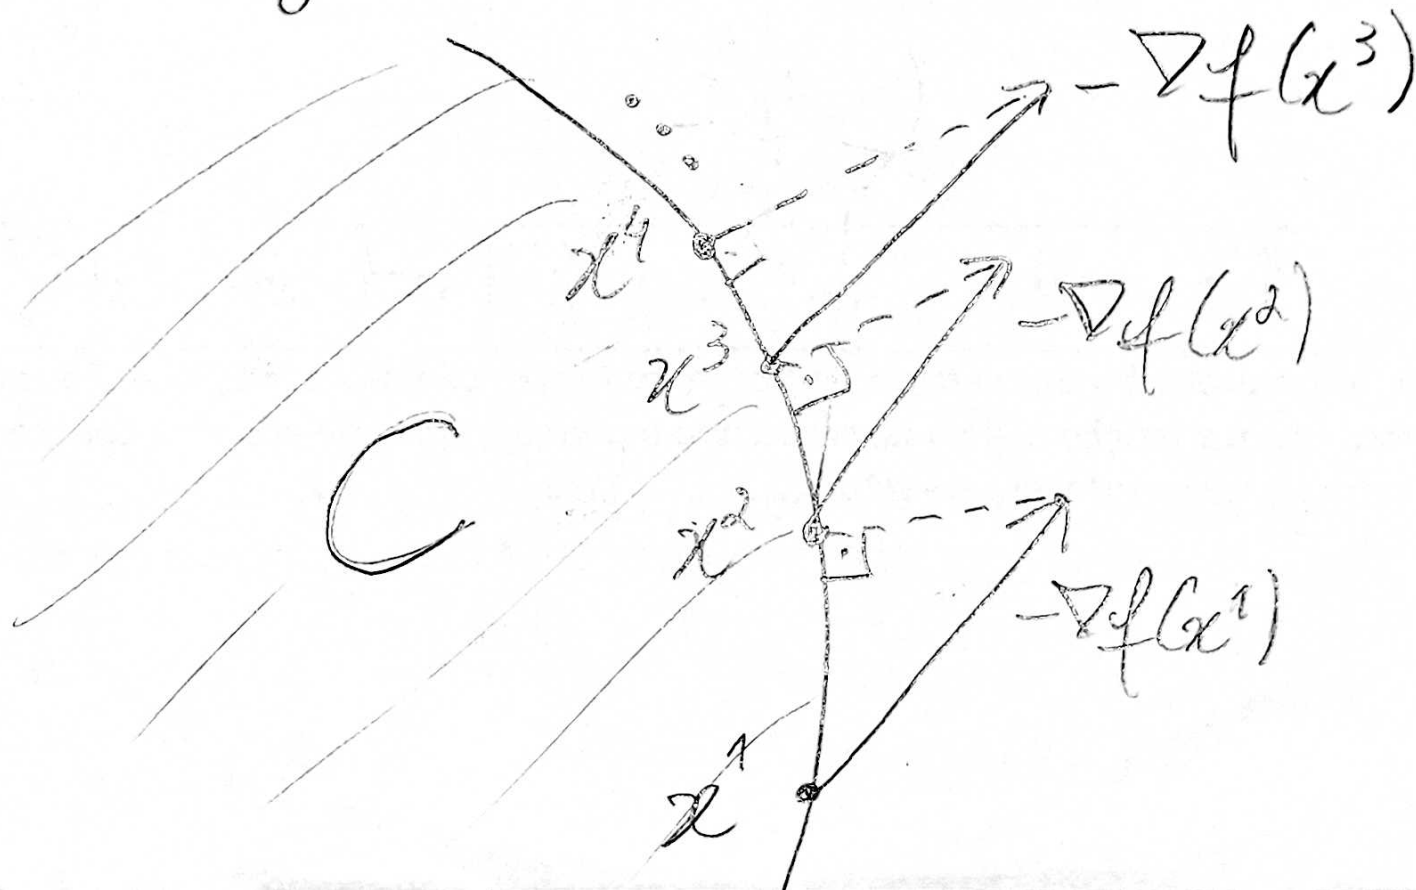 -∇f(x³)
x⁴
-∇f(x²)
x³
C
x²
-∇f(x¹)
x¹